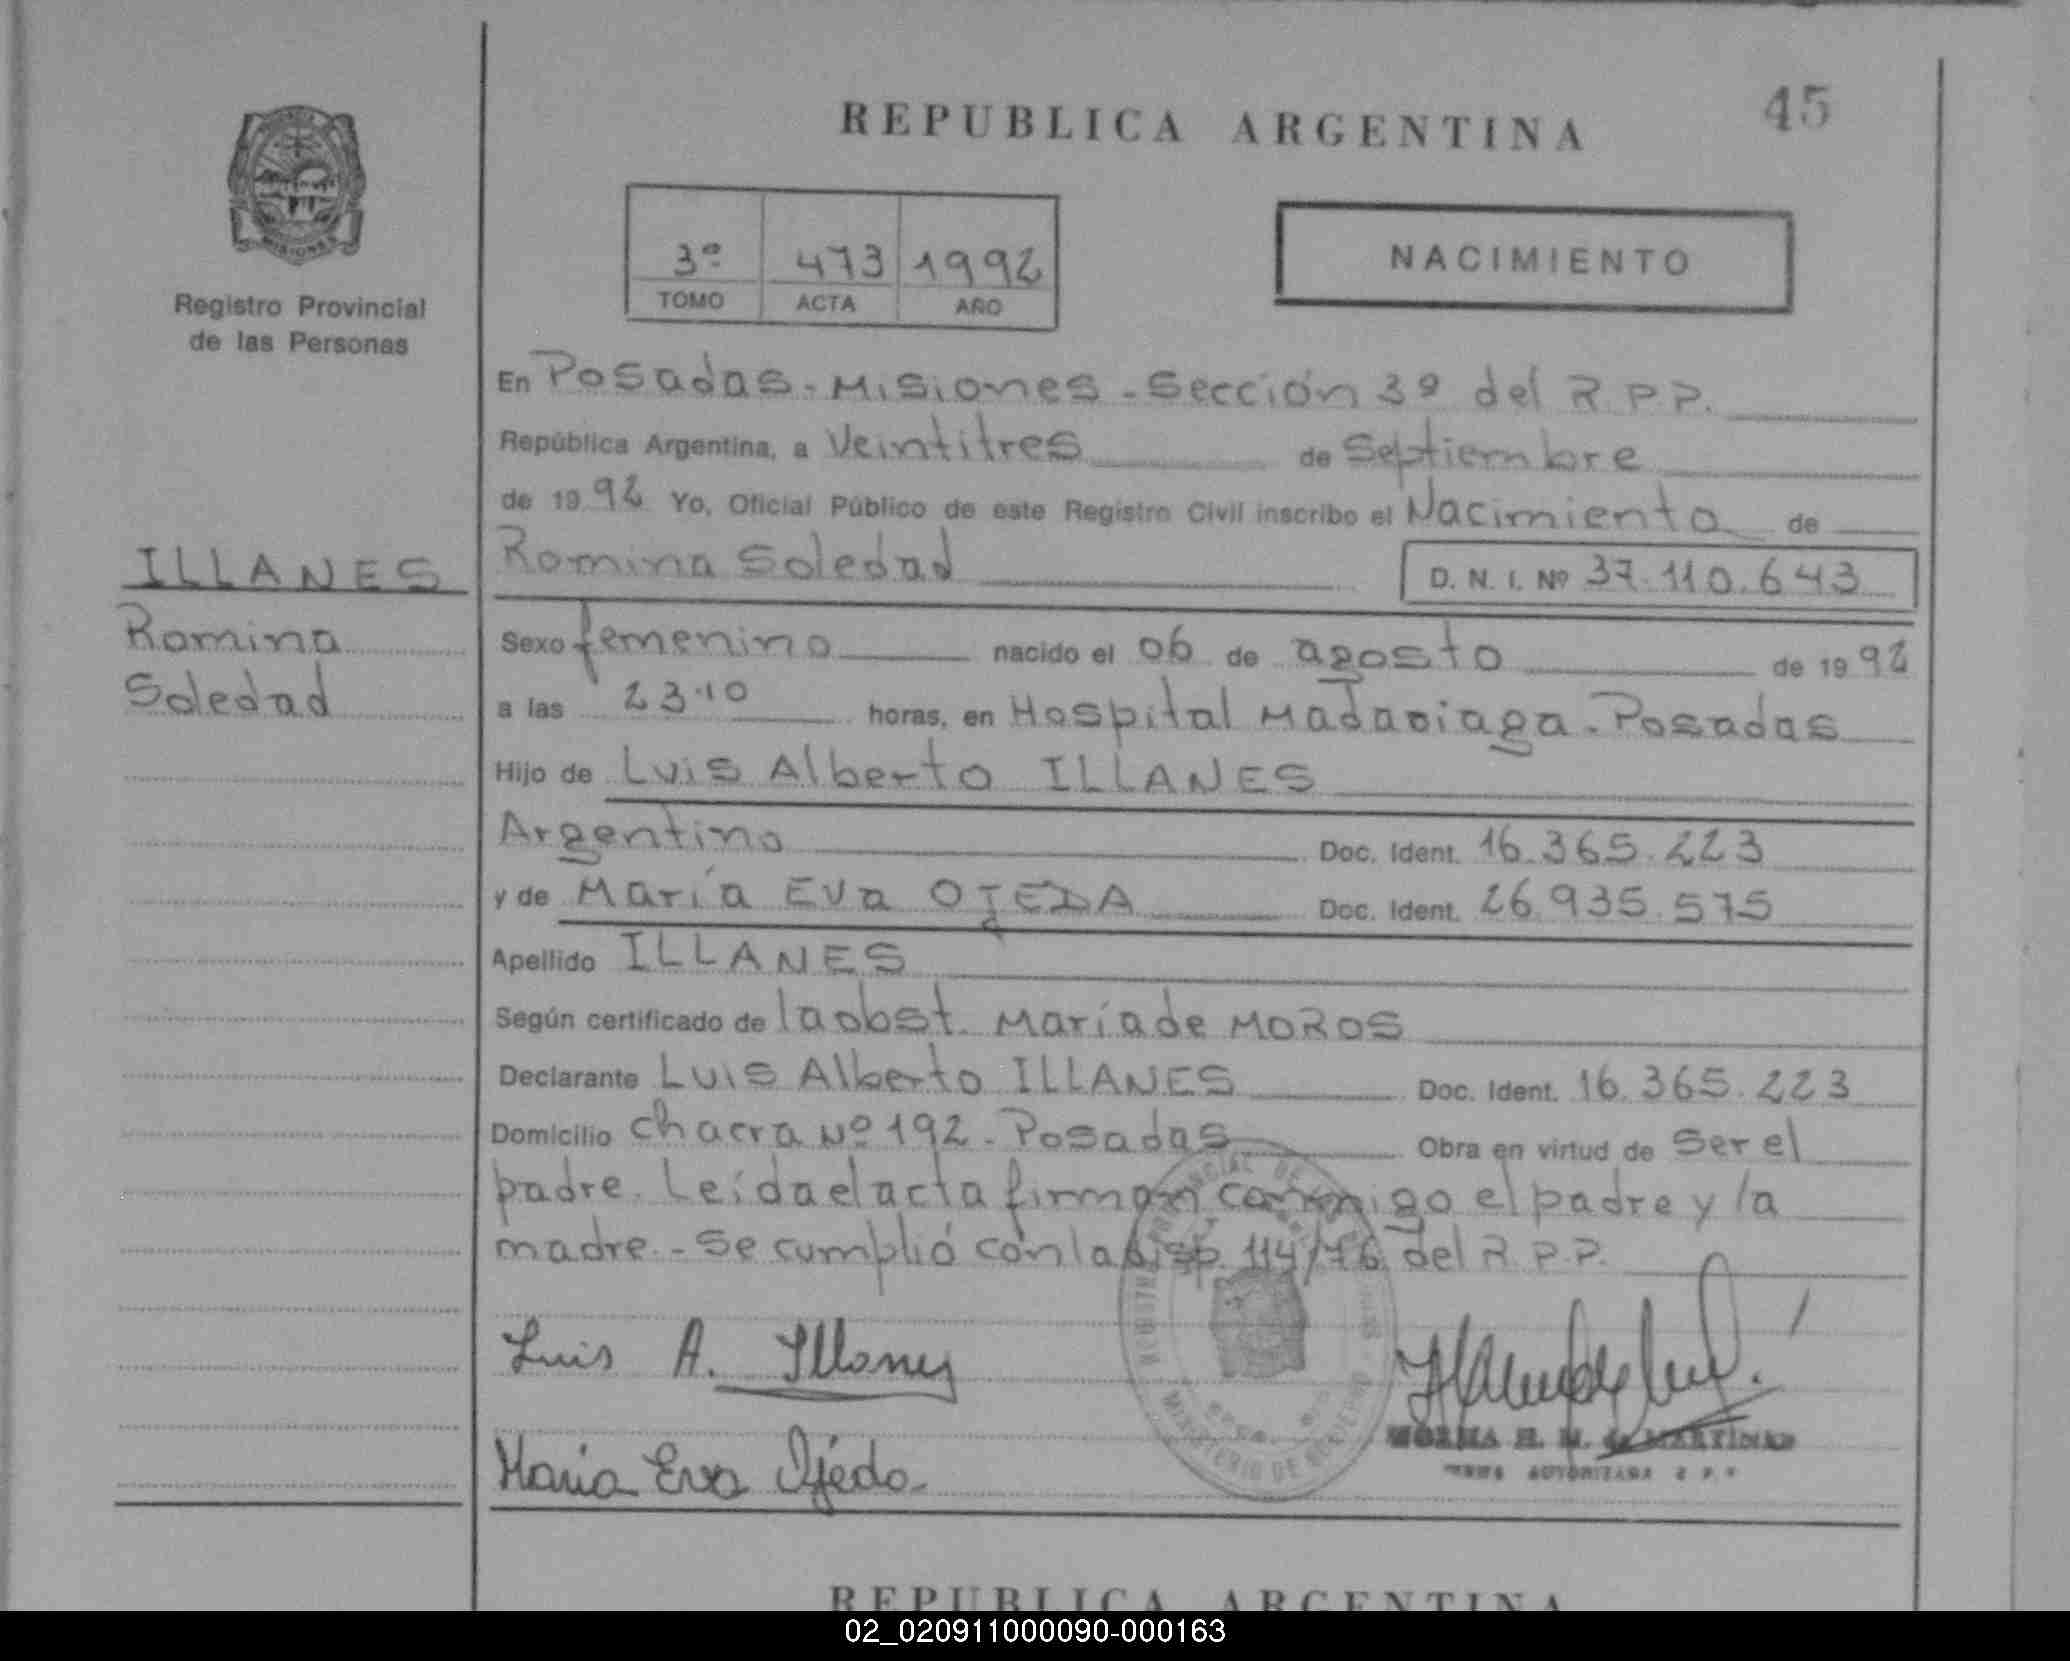 REPUBLICA ARGENTINA
45
MISIONES
Registro Provincial
de las Personas
3º 473 1992
TOMO ACTA AÑO
NACIMIENTO
En Posadas - Misiones - Sección 3º del R.P.P.
República Argentina, a Veintitres de Septiembre
de 1992 Yo, Oficial Público de este Registro Civil inscribo el Nacimiento de
ILLANES
Romina Soledad
D. N. I. Nº 37.110.643
Romina
Soledad
Sexo femenino nacido el 06 de agosto de 1992
a las 23.10 horas, en Hospital Madariaga - Posadas
Hijo de Luis Alberto ILLANES
Argentino Doc. Ident. 16.365.223
y de María Eva OJEDA Doc. Ident. 26.935.575
Apellido ILLANES
Según certificado de la obst. María de MOROS
Declarante Luis Alberto ILLANES Doc. Ident. 16.365.223
Domicilio chacra Nº 192 - Posadas Obra en virtud de ser el
padre. Leída el acta firman conmigo el padre y la
madre. - Se cumplió con la Disp. 114/76 del R.P.P.
Luis A. Illanes
MINISTERIO DE GOBIERNO
NORMA H. M. de MARTINEZ
AUTORIZADA R.P.P.
Maria Eva Ojéda.
REPUBLICA ARGENTINA
02_020911000090-000163